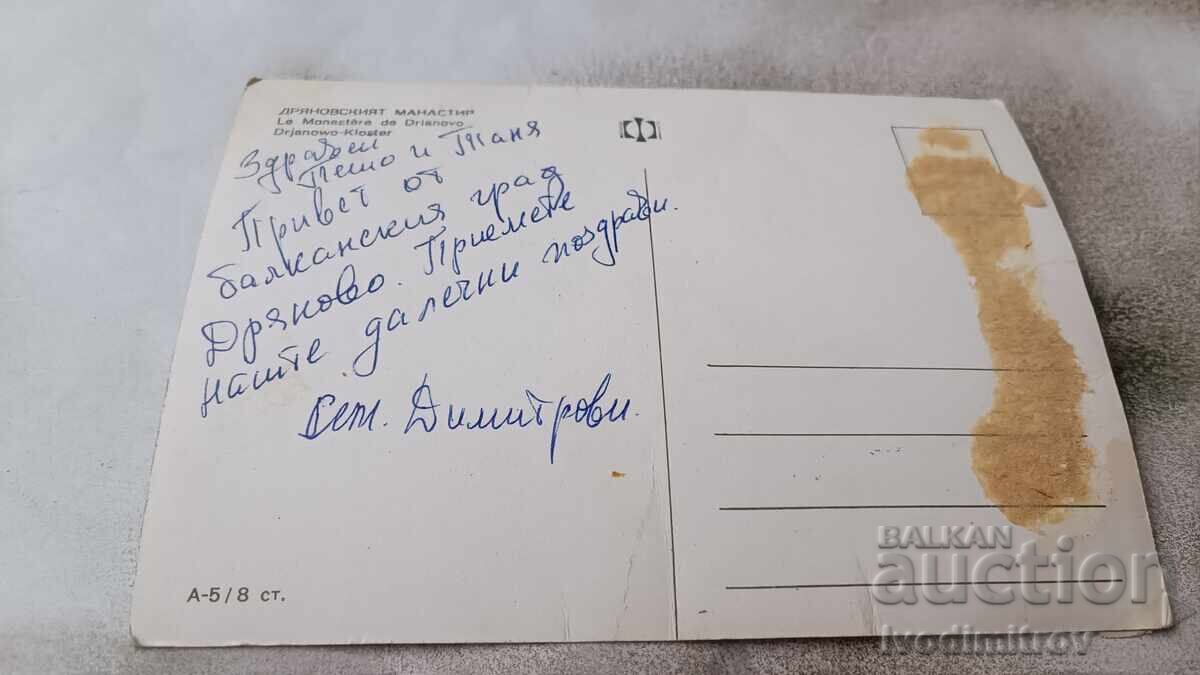 ДРЯНОВСКИЯТ МАНАСТИР
Le Monastère de Drianovo
Drjanowo-Kloster
Здравей
Пешо и Таня
Привет от
балканския град
Дряново. Приемете
наште далечни поздрави.
Сем. Димитрови.
А-5/8 ст.
BALKAN
auction
Ivodimitrov